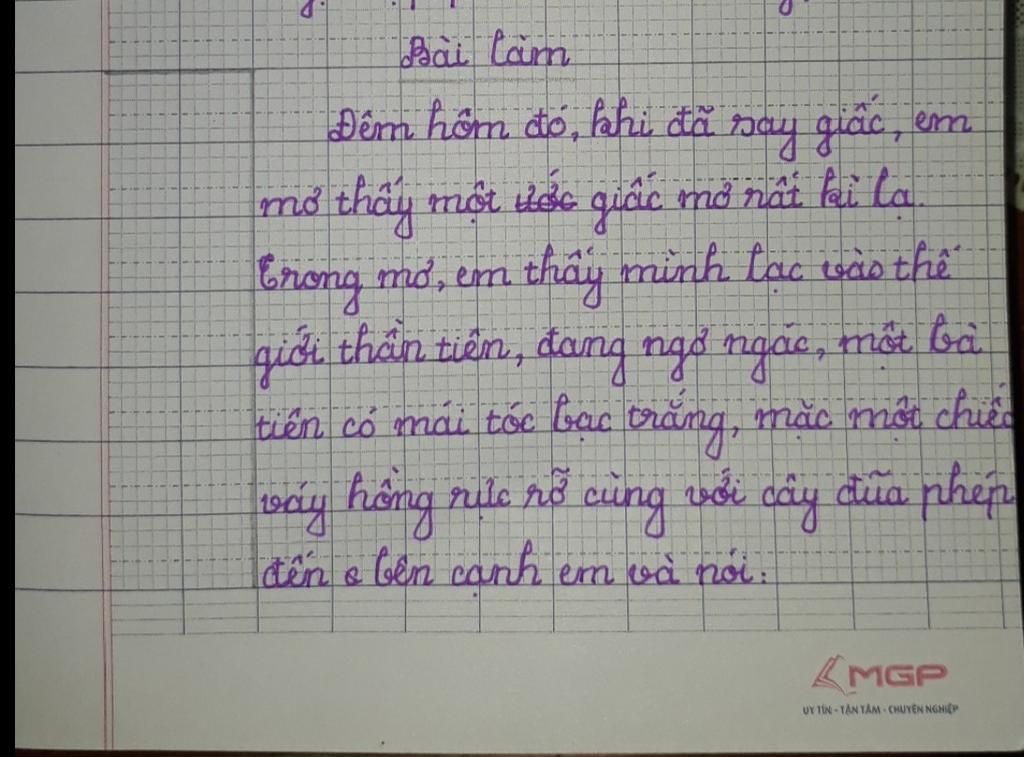 Bài làm
Đêm hôm đó, khi đã say giấc, em
mơ thấy một ước giấc mơ rất kì lạ.
Trong mơ, em thấy mình lạc vào thế
giới thần tiên, đang ngơ ngác, một bà
tiên có mái tóc bạc trắng, mặc một chiếc
váy hồng rực rỡ cùng với cây đũa phép
đến bên cạnh em và nói:
MGP
UY TÍN - TẬN TÂM - CHUYÊN NGHIỆP